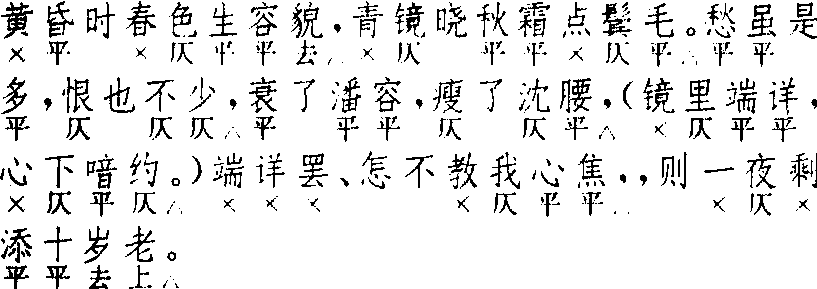 黄昏时春色生容貌，青镜晓秋霜点鬓毛。愁虽是
× 平 × 仄 平 平 去△ × 仄 平 平 × 仄 平△ 平 平
多，恨也不少，衰了潘容，瘦了沈腰，（镜里端详，
平 仄 仄 仄△ 平 平 平 仄 仄 平△ × 仄 平 平
心下喑约。）端详罢、怎不教我心焦，，则一夜剩
× 仄 平 仄△ × × × × 仄 平 平△ × 仄 ×
添十岁老。
平 平 去 上△